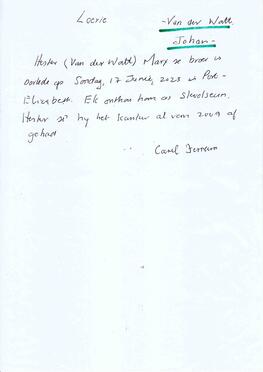 Loerie
-Van der Walt,
Johan-
Hester (Van der Watt) Marx se broer is
oorlede op Sondag, 17 Junie, 2023 in Port-
Elizabeth. Ek onthou hom as skoolseun.
Hester sê hy het kanker al vam 2009 af
gehad
Carel